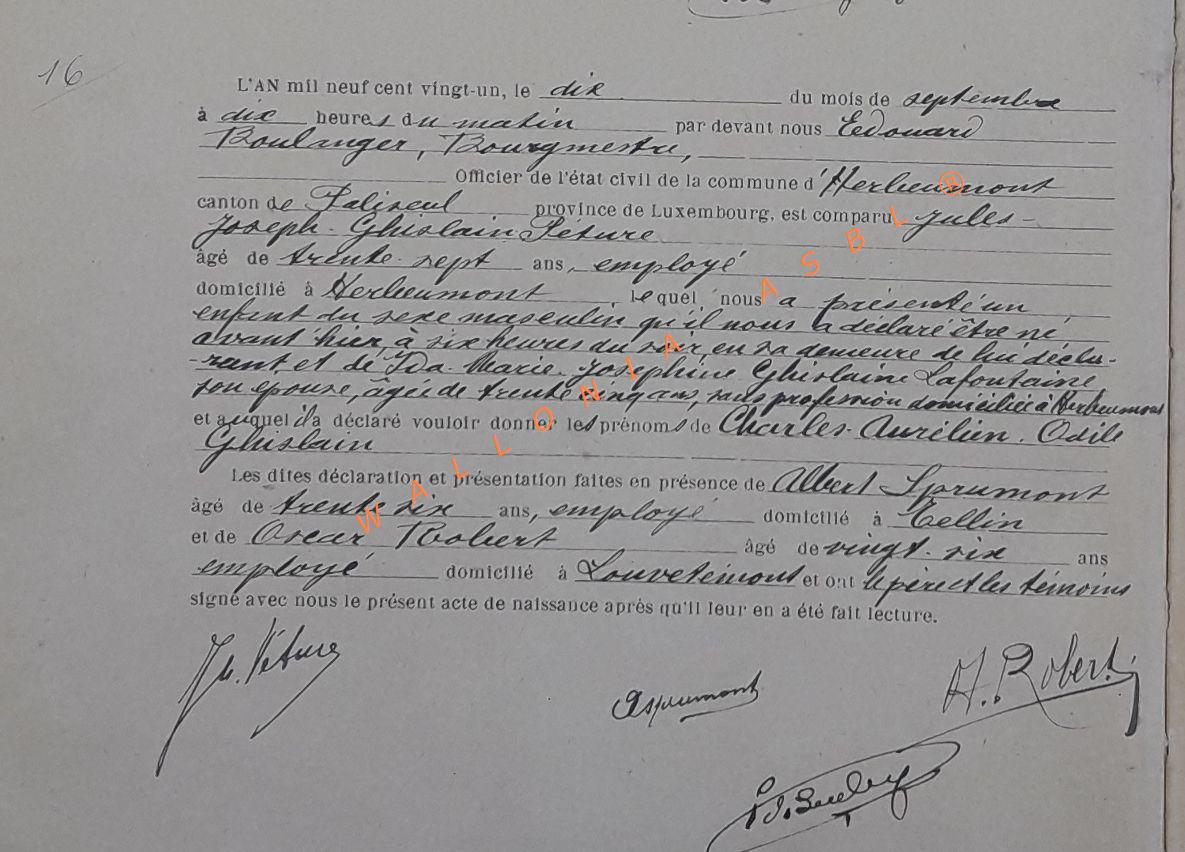 16
L'AN mil neuf cent vingt-un, le dix du mois de septembre
à dix heures du matin par devant nous Edouard
Boulanger, Bourgmestre,
Officier de l'état civil de la commune d'Herbeumont
canton de Paliseul province de Luxembourg, est comparu Jules-
Joseph-Ghislain Péture
âgé de trente-sept ans, employé
domicilié à Herbeumont, lequel nous a présenté un
enfant du sexe masculin qu'il nous a déclaré être né
avant hier, à six heures du soir, en sa demeure de lui décla-
-rant et de Ida-Marie-Joséphine Ghislaine Lafontaine
son épouse, âgée de trente cinq ans, sans profession domiciliée à Herbeumont
et auquel il a déclaré vouloir donner les prénoms de Charles-Aurélien-Odile
Ghislain
Les dites déclaration et présentation faites en présence de Albert Sprumont
âgé de trente six ans, employé domicilié à Tellin
et de Oscar Robert âgé de vingt-six ans
employé domicilié à et ont le père et les témoins
signé avec nous le présent acte de naissance après qu'il leur en a été fait lecture.
Péture
Asprumont
Robert
WALLONIA ASBL ®